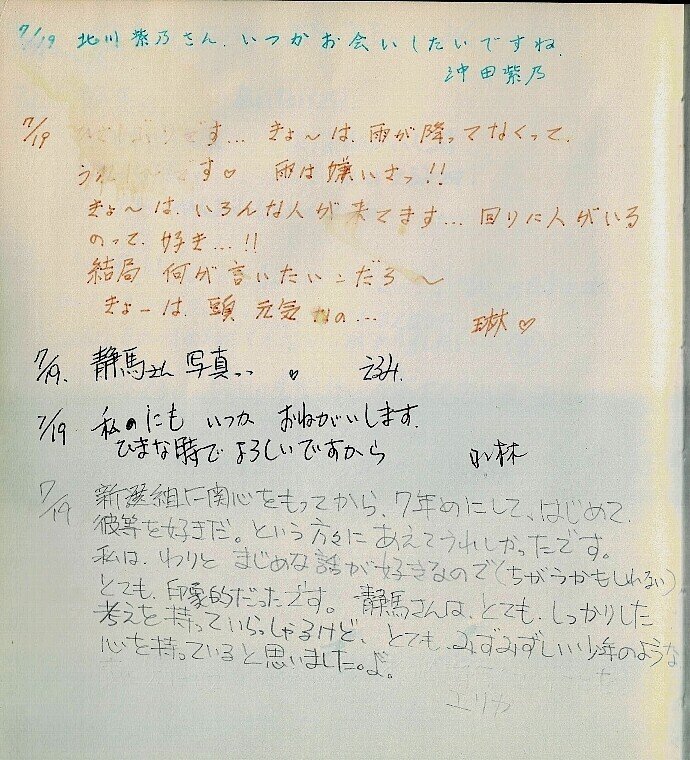 7/19 北川紫乃さん、いつかお会いしたいですね。
沖田紫乃
7/19 です… きょ〜は、雨が降ってなくって、
うれ す♡ 雨は嫌いさっ!!
きょ〜は、いろんな人が来てます… 回りに人がいる
のって、好き…!!
結局 何が言いたいんだろ〜
きょーは、頭 元気 の…
琳♡
7/19. 静馬さん 写真 ♡ えみ.
7/19 私のにも いつか おねがいします.
ひまな時で よろしいですから 小林
7/19 新選組に関心をもってから、7年めにして、はじめて、
彼等を好きだ。という方々に あえてうれしかったです。
私は、わりと まじめな話が好きなので(ちがうかもしれない)
とても、印象的だったです。 静馬さんは、とても、しっかりした
考えを持っていらっしゃるけど、とても、みずみずしい少年のような
心を持っていると思いました。よ。
エリカ